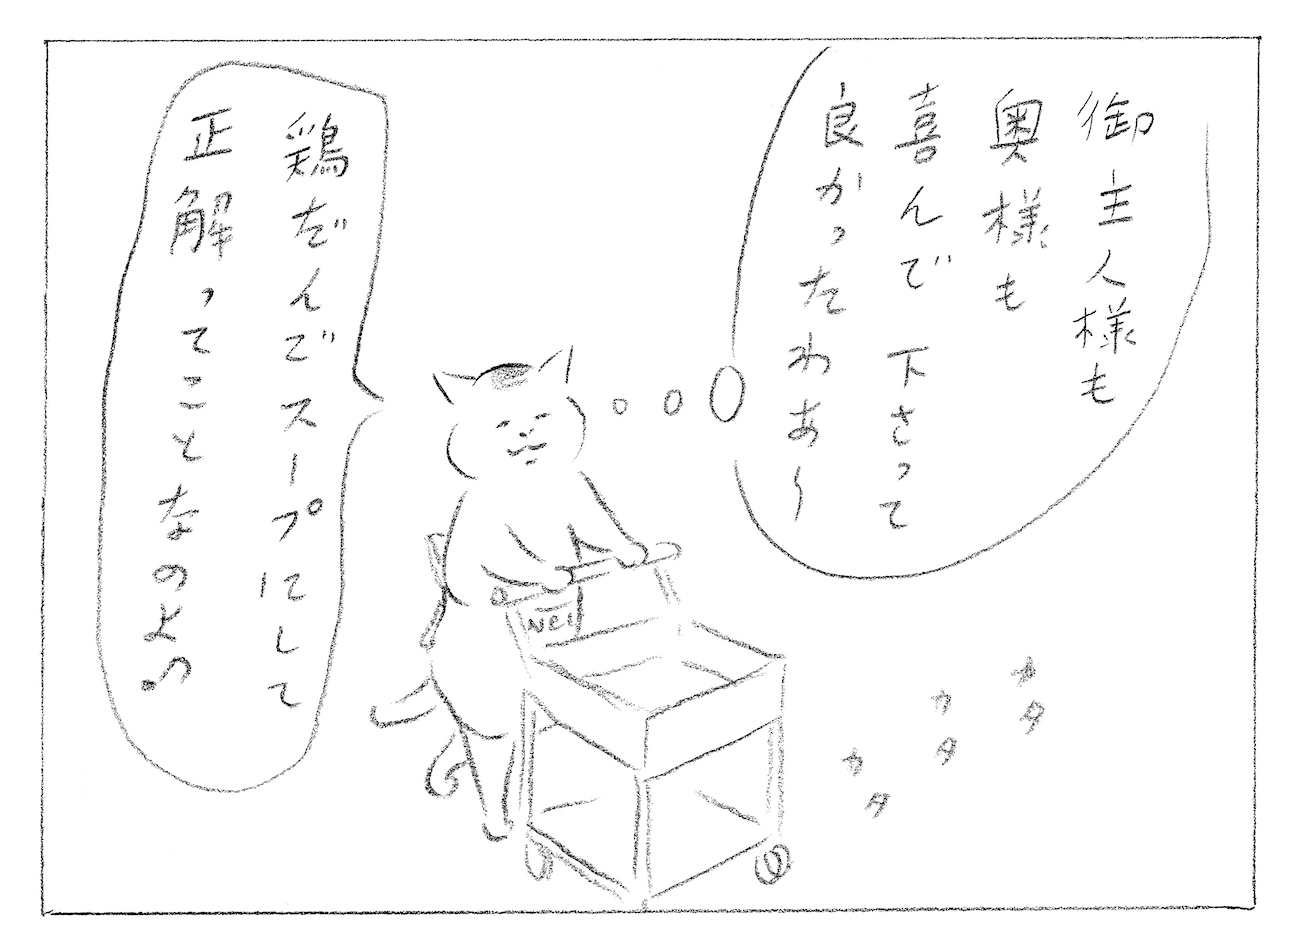 御主人様も
奥様も
喜んで下さって
良かったわあ〜
鶏だんごスープにして
正解ってことなのよつ
NCI
カタ
カタ
カタ